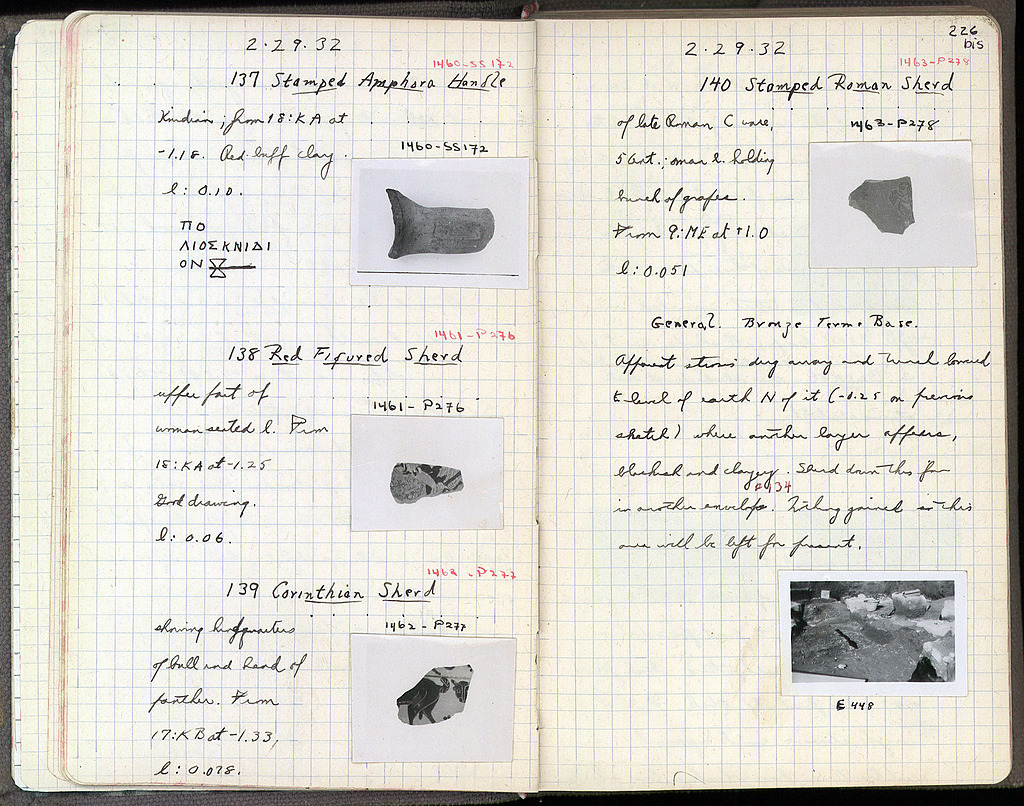 2·29·32
1460-SS172
137 Stamped Amphora Handle
Knidian; from 18:KA at
-1.18. Red buff clay.
1460-SS172
l: 0.10.
ΠΟ
ΛΙΟΣΚΝΙΔΙ
ΟΝ
1461-P276
138 Red Figured Sherd
upper part of
1461-P276
woman seated l. From
18:KA at -1.25
Good drawing.
l: 0.06.
1462-P277
139 Corinthian Sherd
showing hindquarters
1462-P277
of bull and head of
panther. From
17:KB at -1.33,
l: 0.078.
226
bis
2·29·32
1463-P278
140 Stamped Roman Sherd
of late Roman C ware,
1463-P278
5 cent.; man l. holding
bunch of grapes.
From 9:ME at +1.0
l: 0.051
General. Bronze Terms Base.
Apparent dug away and lowered
to level of earth N of it (-0.25 on previous
sketch) where another layer appears,
blackish and clayey. down this far
#134
in another envelope. Nothing in this
area will be left for present.
E 448